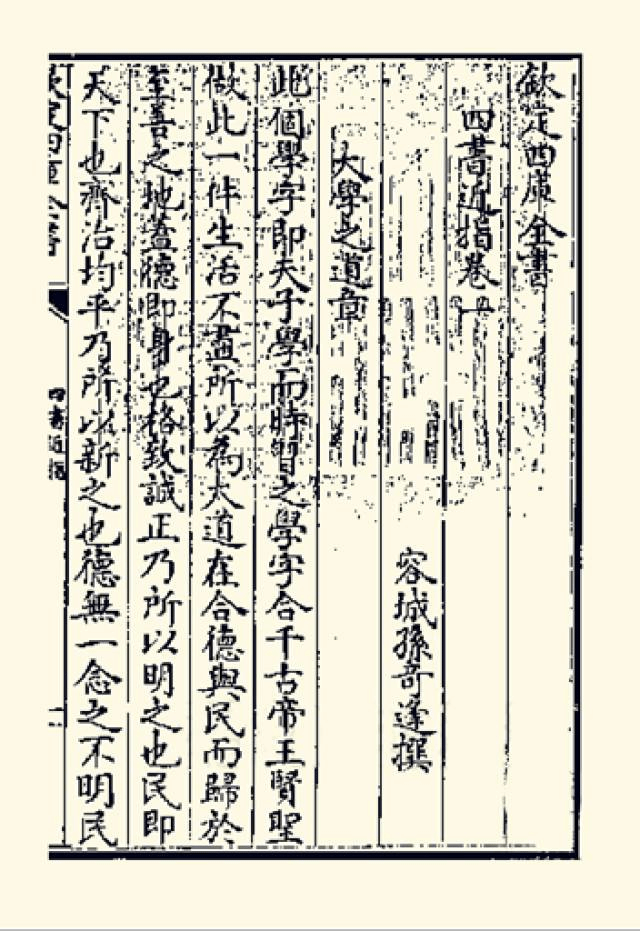 欽定四庫全書
四書近指卷一
容城孫奇逢撰
大學之道章
此個學字即夫子學而時習之學字合千古帝王賢聖
做此一件生活不盡所以為大道在合德與民而歸於
至善之地蓋德即身也格致誠正乃所以明之也民即
天下也齊治均平乃所以新之也德無一念之不明民
欽定四庫全書
四書近指